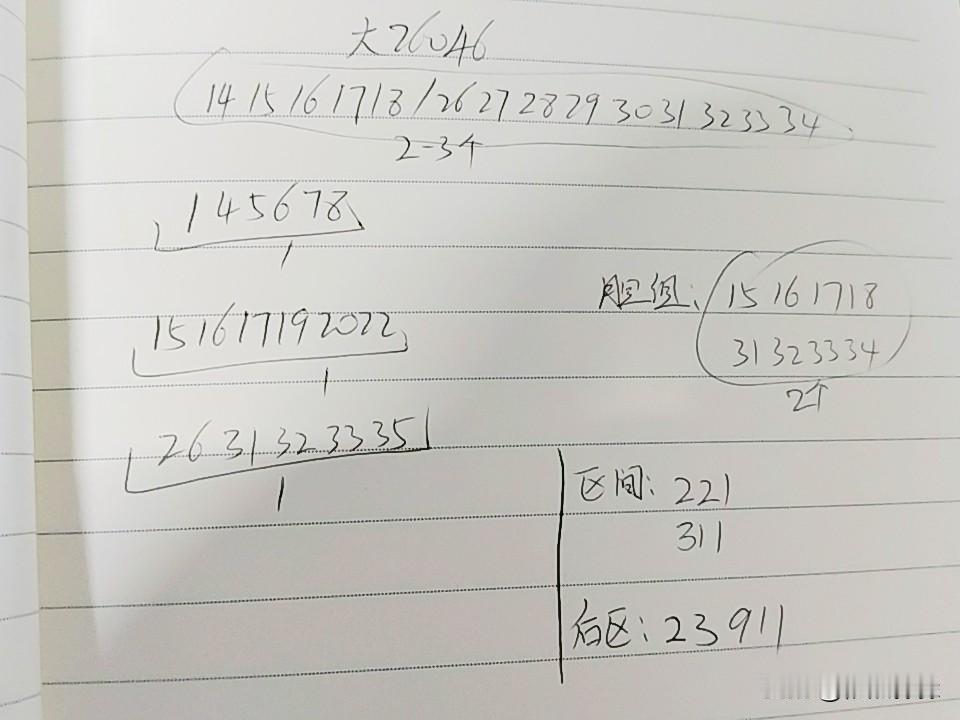 大26046
14 15 16 17 18 / 26 27 28 29 30 31 32 33 34
2-3个
1 4 5 6 7 8
1
15 16 17 19 20 22
1
26 31 32 33 35
1
胆组: 15 16 17 18
31 32 33 34
2个
区间: 221
311
后区: 2 3 9 11